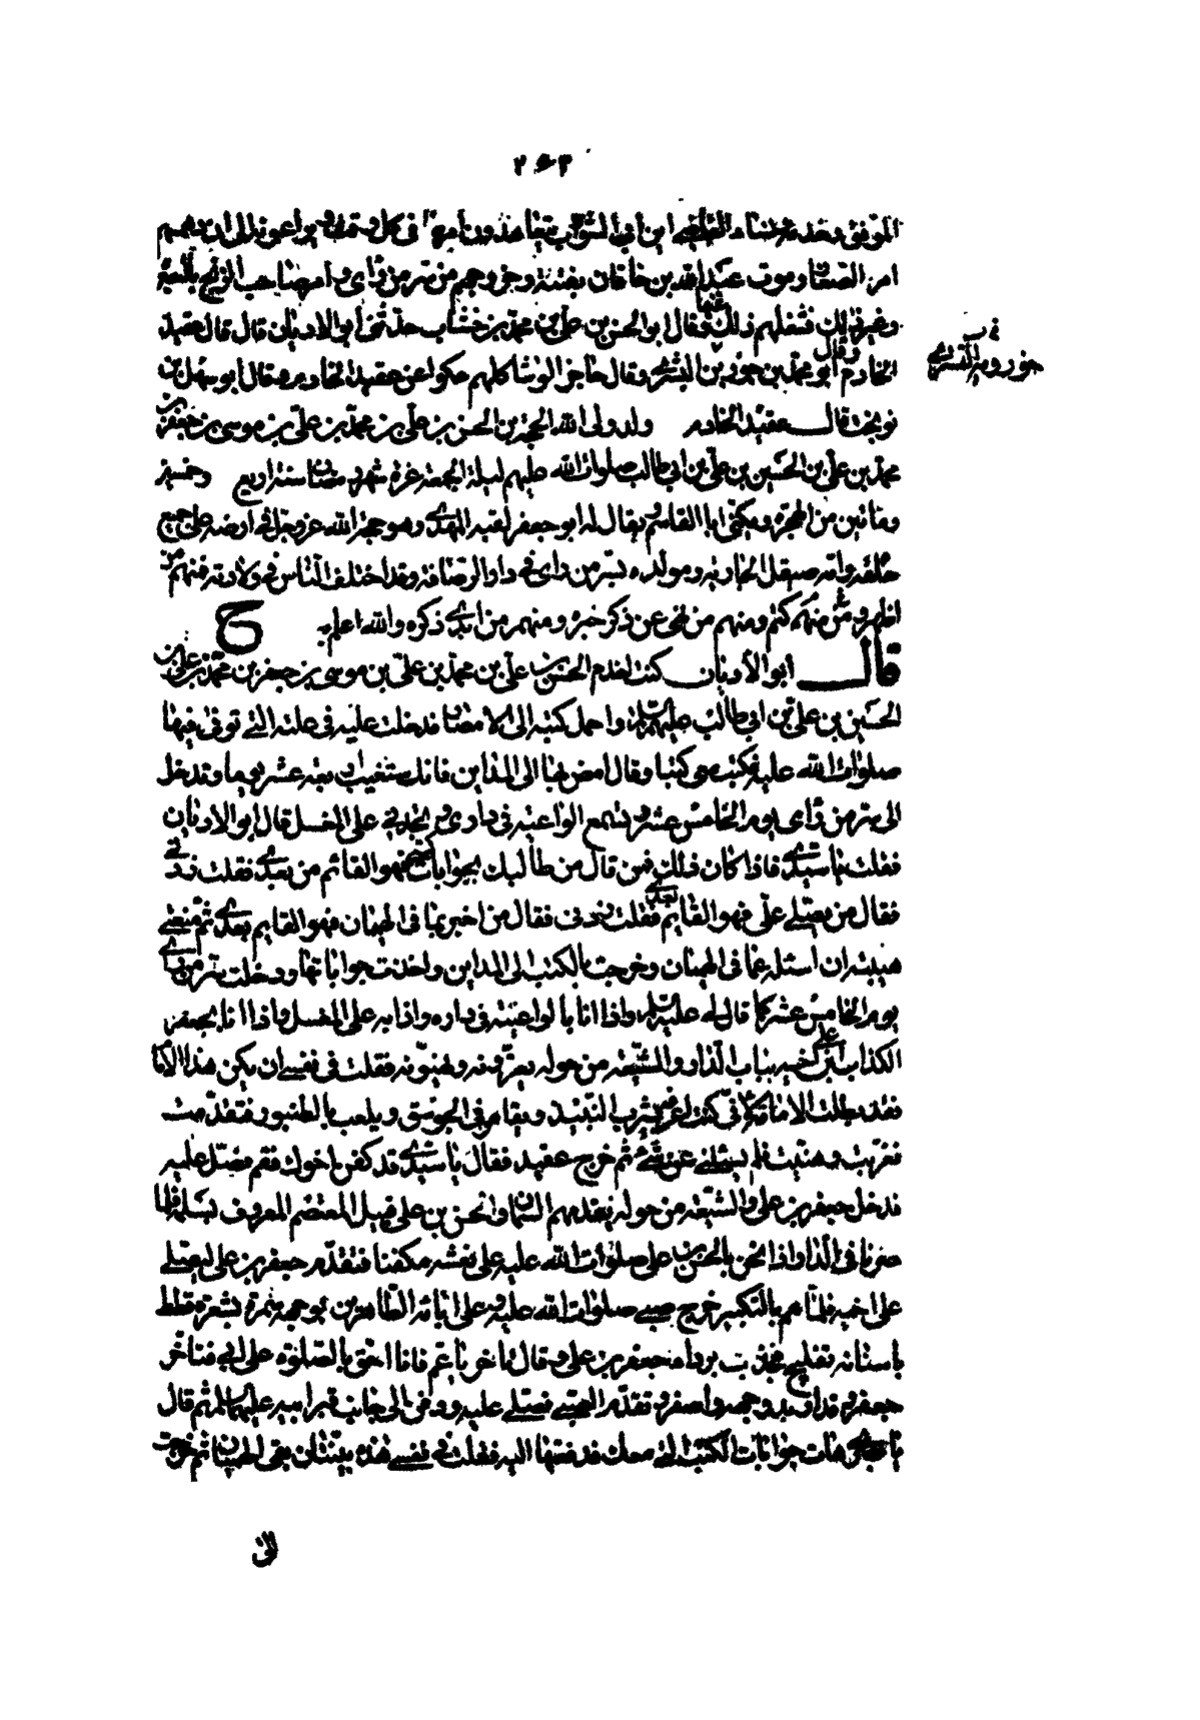 ٢٦٣
الموفق وخدمه ونساء القاضي ابن أبي الشوارب يتعاهدون امرها في كل وقت ويراعونه الى ان دهمهم
امر الصفار وموت عبيد الله بن خاقان بغتة وخروجهم من سر من رأى وامر صاحب الزنج بالبصرة
وغير ذلك فشغلهم ذلك عنها وقال ابو الحسن بن علي بن محمد بن خشاب حدثني أبو الاديان قال قال عقيد
الخادم وقال أبو محمد بن خيرويه البشري وقال حاجز الوشا كلهم حكوا عن عقيد الخادم وقال أبو سهل بن
نوبخت قال عقيد الخادم ولد ولي الله الحجة بن الحسن بن علي بن محمد بن علي بن موسى بن جعفر بن
محمد بن علي بن الحسين بن علي بن ابي طالب صلوات الله عليهم ليلة الجمعة غرة شهر رمضان سنة اربع وخمسين
ومائتين من الهجرة ويكنى ابا القاسم ويقال له ابو جعفر لقبه المهدي وهو حجة الله عز وجل في ارضه على جميع
خلقه وامه صيقل الجارية ومولده بسر من رأى في دار الرصافة وقد اختلف الناس في ولادته فمنهم من
اظهر ومنهم من كتم ومنهم من نهى عن ذكر خبره ومنهم من ابدى ذكره والله اعلم به
قال أبو الأديان كنت اخدم الحسن بن علي بن محمد بن علي بن موسى بن جعفر بن محمد بن علي بن
الحسين بن علي بن ابي طالب عليهم السلام واحمل كتبه إلى الامصار فدخلت عليه في علته التي توفى فيها
صلوات الله عليه فكتب معي كتبا وقال امض بها الى المداين فانك ستغيب اربعة عشر يوما وتدخل
الى سر من رأى يوم الخامس عشر وتسمع الواعية في داري وتجدني على المغسل قال ابو الاديان
فقلت يا سيدي فاذا كان ذلك فمن قال من طالبك بجوابات كتبي فهو القائم من بعدي فقلت زدني
فقال من يصلي علي فهو القائم بعدي فقلت زدني فقال من اخبر بما في الهميان فهو القايم بعدي ثم منعتني
هيبته ان اسئله عما في الهميان وخرجت بالكتب الى المداين واخذت جواباتها ودخلت سر من رأى
يوم الخامس عشر كما قال لي عليه السلام واذا انا بالواعية في داره واذا به على المغسل واذا انا بجعفر
الكذاب بن علي اخيه بباب الدار والشيعة من حوله يعزونه ويهنونه فقلت في نفسي ان يكن هذا الامام
فقد بطلت الامامة لاني كنت اعرفه يشرب النبيذ ويقامر في الجوسق ويلعب بالطنبور فتقدمت
فعزيت وهنيت فلم يسئلني عن شيء ثم خرج عقيد فقال يا سيدي قد كفن اخوك فقم فصل عليه
فدخل جعفر بن علي والشيعة من حوله يقدمهم السمان والحسن بن علي قبيل المعتصم المعروف بسلمة فلما
صرنا في الدار اذا نحن بالحسن بن علي صلوات الله عليه على نعشه مكفنا فتقدم جعفر بن علي ليصلي
على اخيه فلما هم بالتكبير خرج صبي صلوات الله عليه وعلى ابائه الطاهرين بوجهه سمرة بشعره قطط
باسنانه تفليج فجذب برداء جعفر بن علي وقال تاخر يا عم فانا احق بالصلوة على ابي فتاخر
جعفر وقد اربد وجهه واصفر وتقدم الصبي فصلى عليه ودفن الى جانب قبر ابيه عليهما السلام ثم قال
يا بصري هات جوابات الكتب التي معك فدفعتها اليه فقلت في نفسي هذه بينتان بقى الهميان ثم خرجت
الى